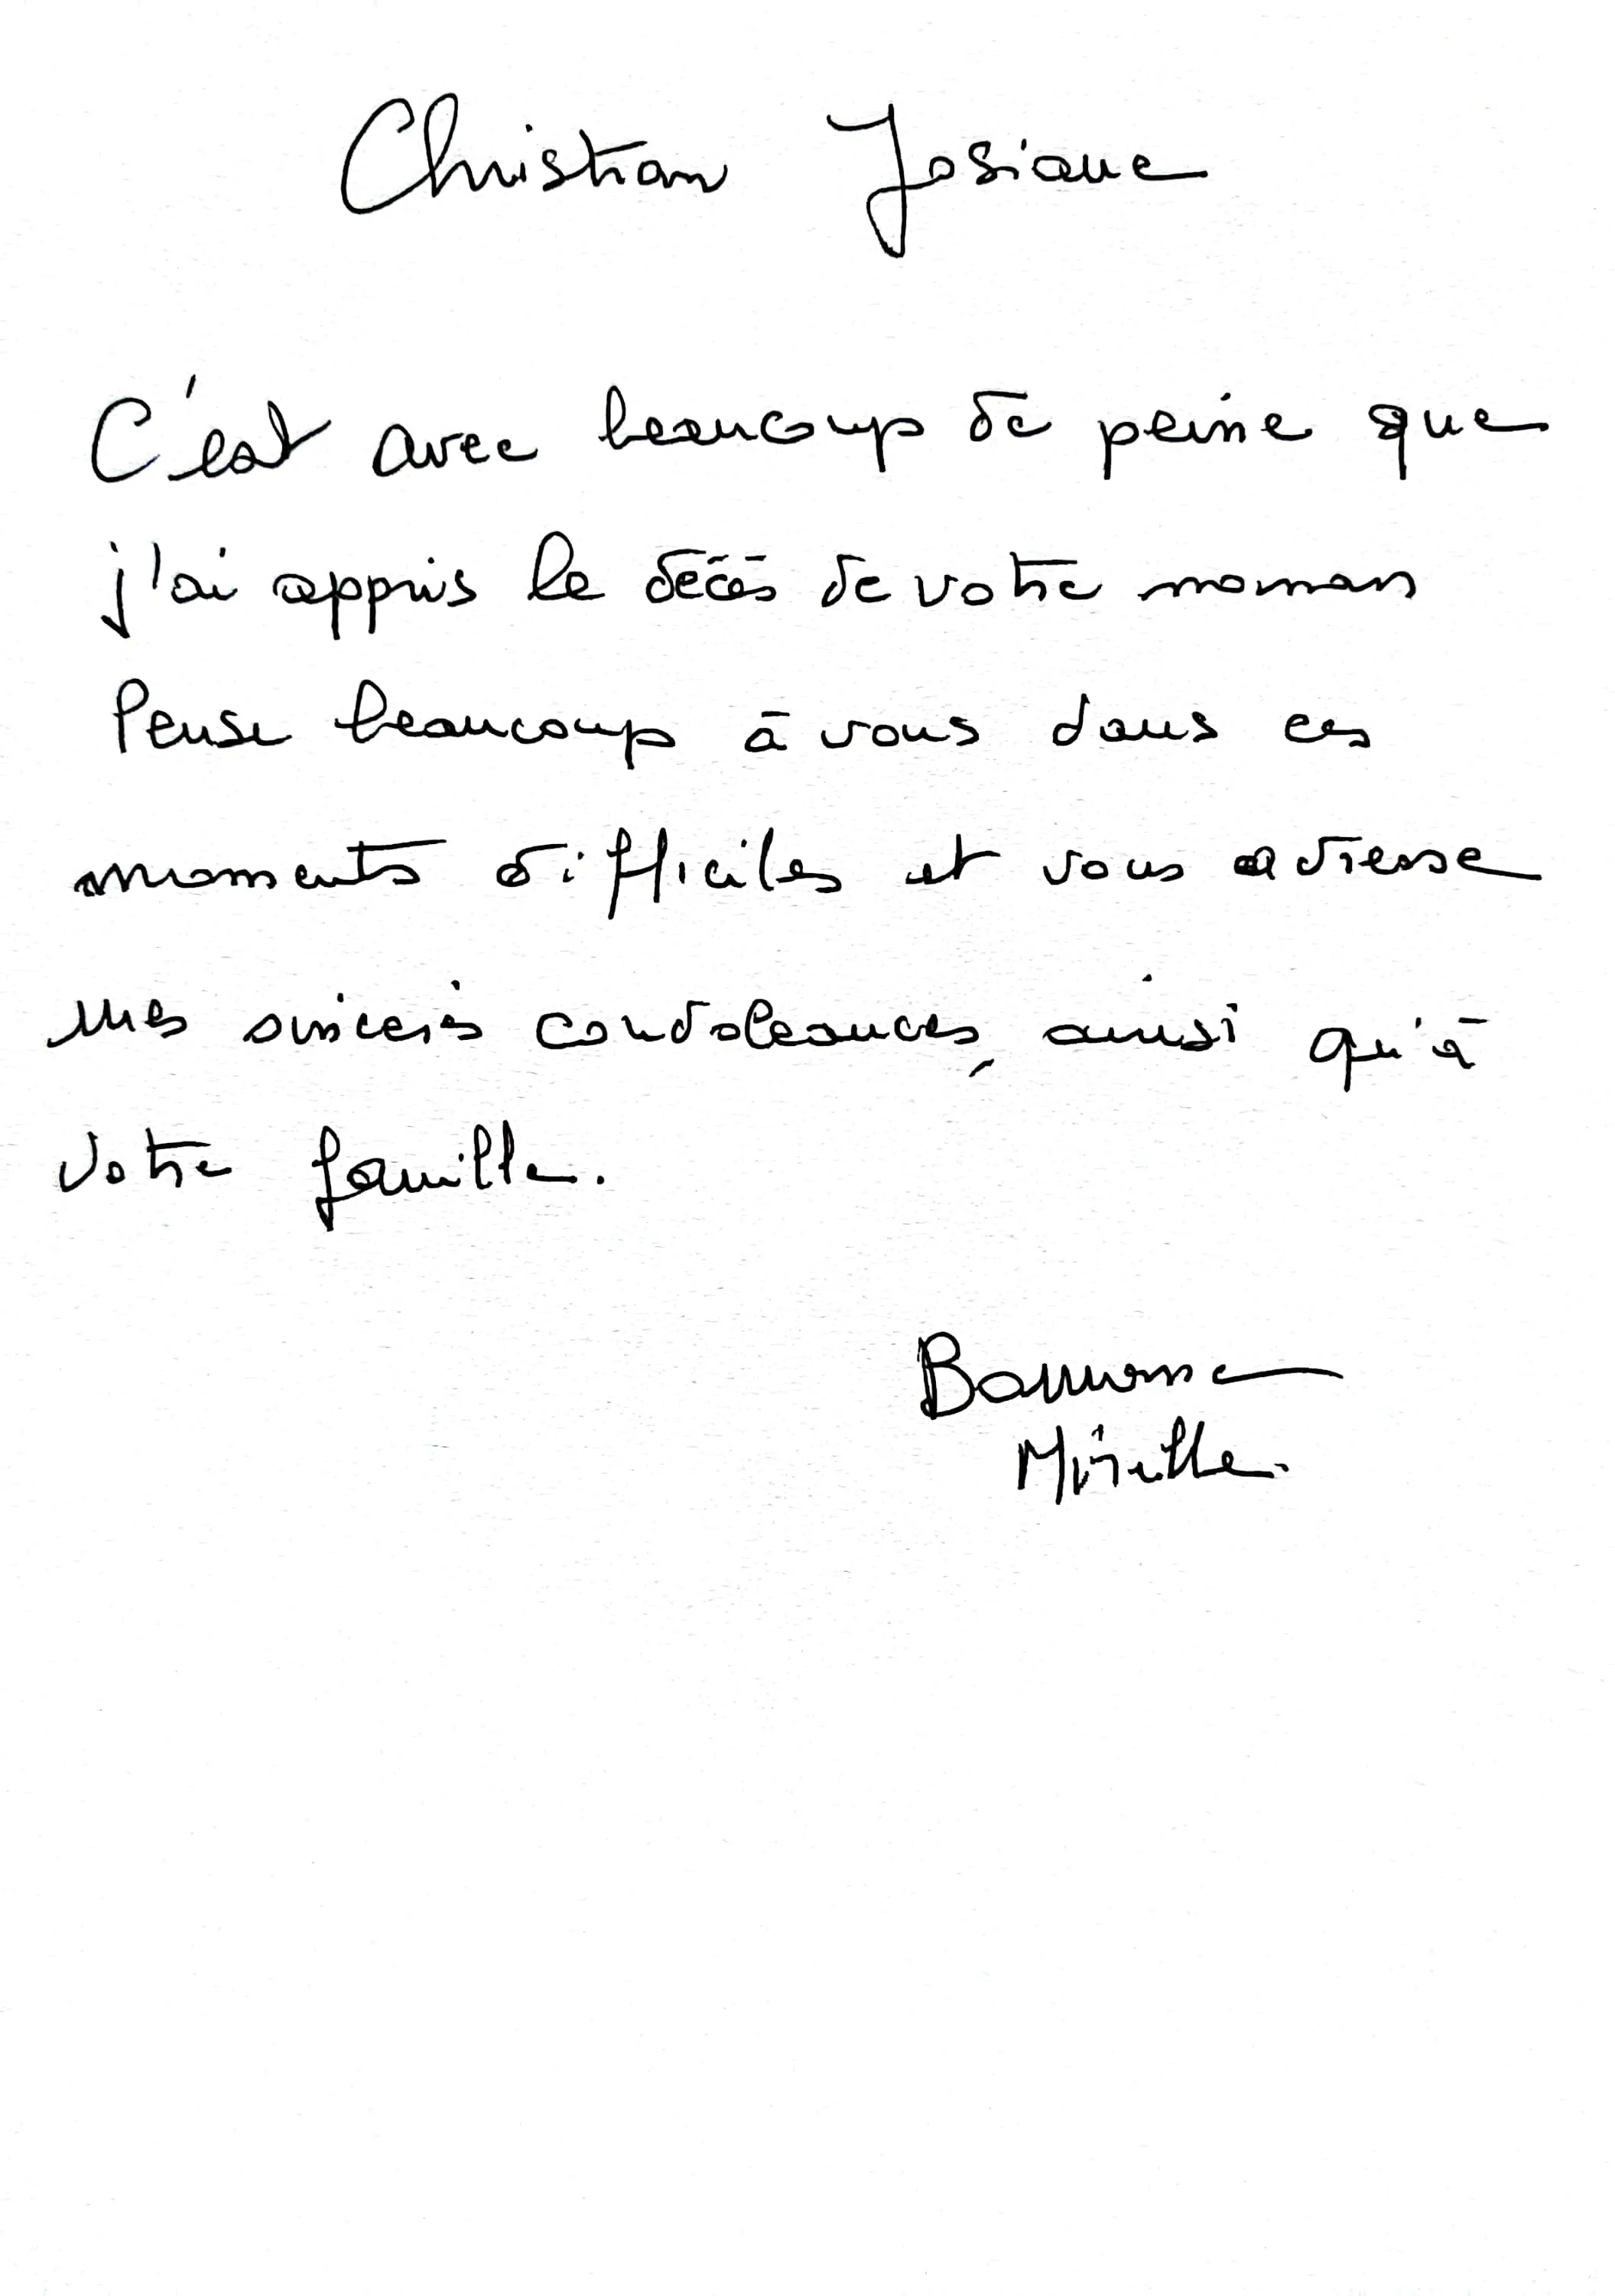 Christian Josiane
C'est avec beaucoup de peine que
j'ai appris le décès de votre maman
Pense beaucoup à vous dans ces
moments difficiles et vous adresse
mes sincères condoléances, ainsi qu'à
votre famille.
Mireille.